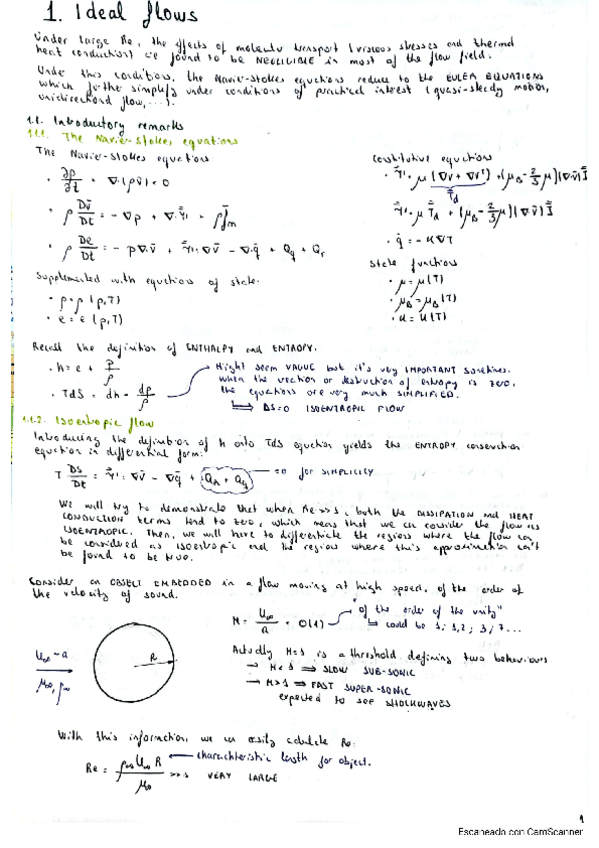 1. Ideal flows
Under large Re, the effects of molecular transport (viscous stresses and thermal
heat conduction) are found to be NEGLIGIBLE in most of the flow field.
Under this conditions, the Navier-Stokes equations reduce to the EULER EQUATIONS
which further simplify under conditions of practical interest (quasi-steady motion,
unidirectional flow, ...).
1.1. Introductory remarks
1.1.1. The Navier-Stokes equations
The Navier-Stokes equations
Constitutive equations
· ∂ρ/∂t + ∇·(ρv̄) = 0
· τ̿' = μ(∇v̄ + ∇v̄ᵀ) + (μB - 2/3 μ)(∇·v̄)I̿
T̿d
· ρ Dv̄/Dt = -∇p + ∇·τ̿' + ρf̄m
τ̿' = μT̿d + (μB - 2/3 μ)(∇·v̄)I̿
· ρ De/Dt = -p∇·v̄ + τ̿':∇v̄ - ∇·q̄ + Qq + Qr
· q̄ = -κ∇T
State functions
Supplemented with equations of state:
· μ = μ(T)
· ρ = ρ(p,T)
· μB = μB(T)
· e = e(p,T)
· κ = κ(T)
Recall the definition of ENTHALPY and ENTROPY.
· h = e + p/ρ
Might seem VAGUE but it's very IMPORTANT sometimes.
when the creation or destruction of entropy is zero,
· TdS = dh - dp/ρ
the equations are very much SIMPLIFIED.
⟹ ΔS=0 ISOENTROPIC FLOW
1.1.2. Isoentropic flow
Introducing the definition of h onto TdS equation yields the ENTROPY conservation
equation in differential form:
T DS/Dt = τ̿':∇v̄ - ∇q̄ + (Qr + Qq) =0 for SIMPLICITY
We will try to demonstrate that when Re>>1, both the DISSIPATION and HEAT
CONDUCTION terms tend to zero, which means that we can consider the flow as
ISOENTROPIC. Then, we will have to differentiate the regions where the flow can
be considered as isoentropic and the regions where this approximation can't
be found to be true.
Consider an OBJECT EMBEDDED in a flow moving at high speed, of the order of
the velocity of sound.
M = U∞/a = O(1) "of the order of the unity"
↳ could be 1; 1,2; 3; 7...
U∞~a
μ∞, ρ∞
R
Actually M=1 is a threshold defining two behaviours
→ M<1 ⟹ SLOW SUB-SONIC
→ M>1 ⟹ FAST SUPER-SONIC
expected to see SHOCKWAVES
With this information, we can easily calculate Re:
Re = ρ∞ U∞ R/μ∞ >>1 VERY LARGE
characteristic length for object.
1
Escaneado con CamScanner